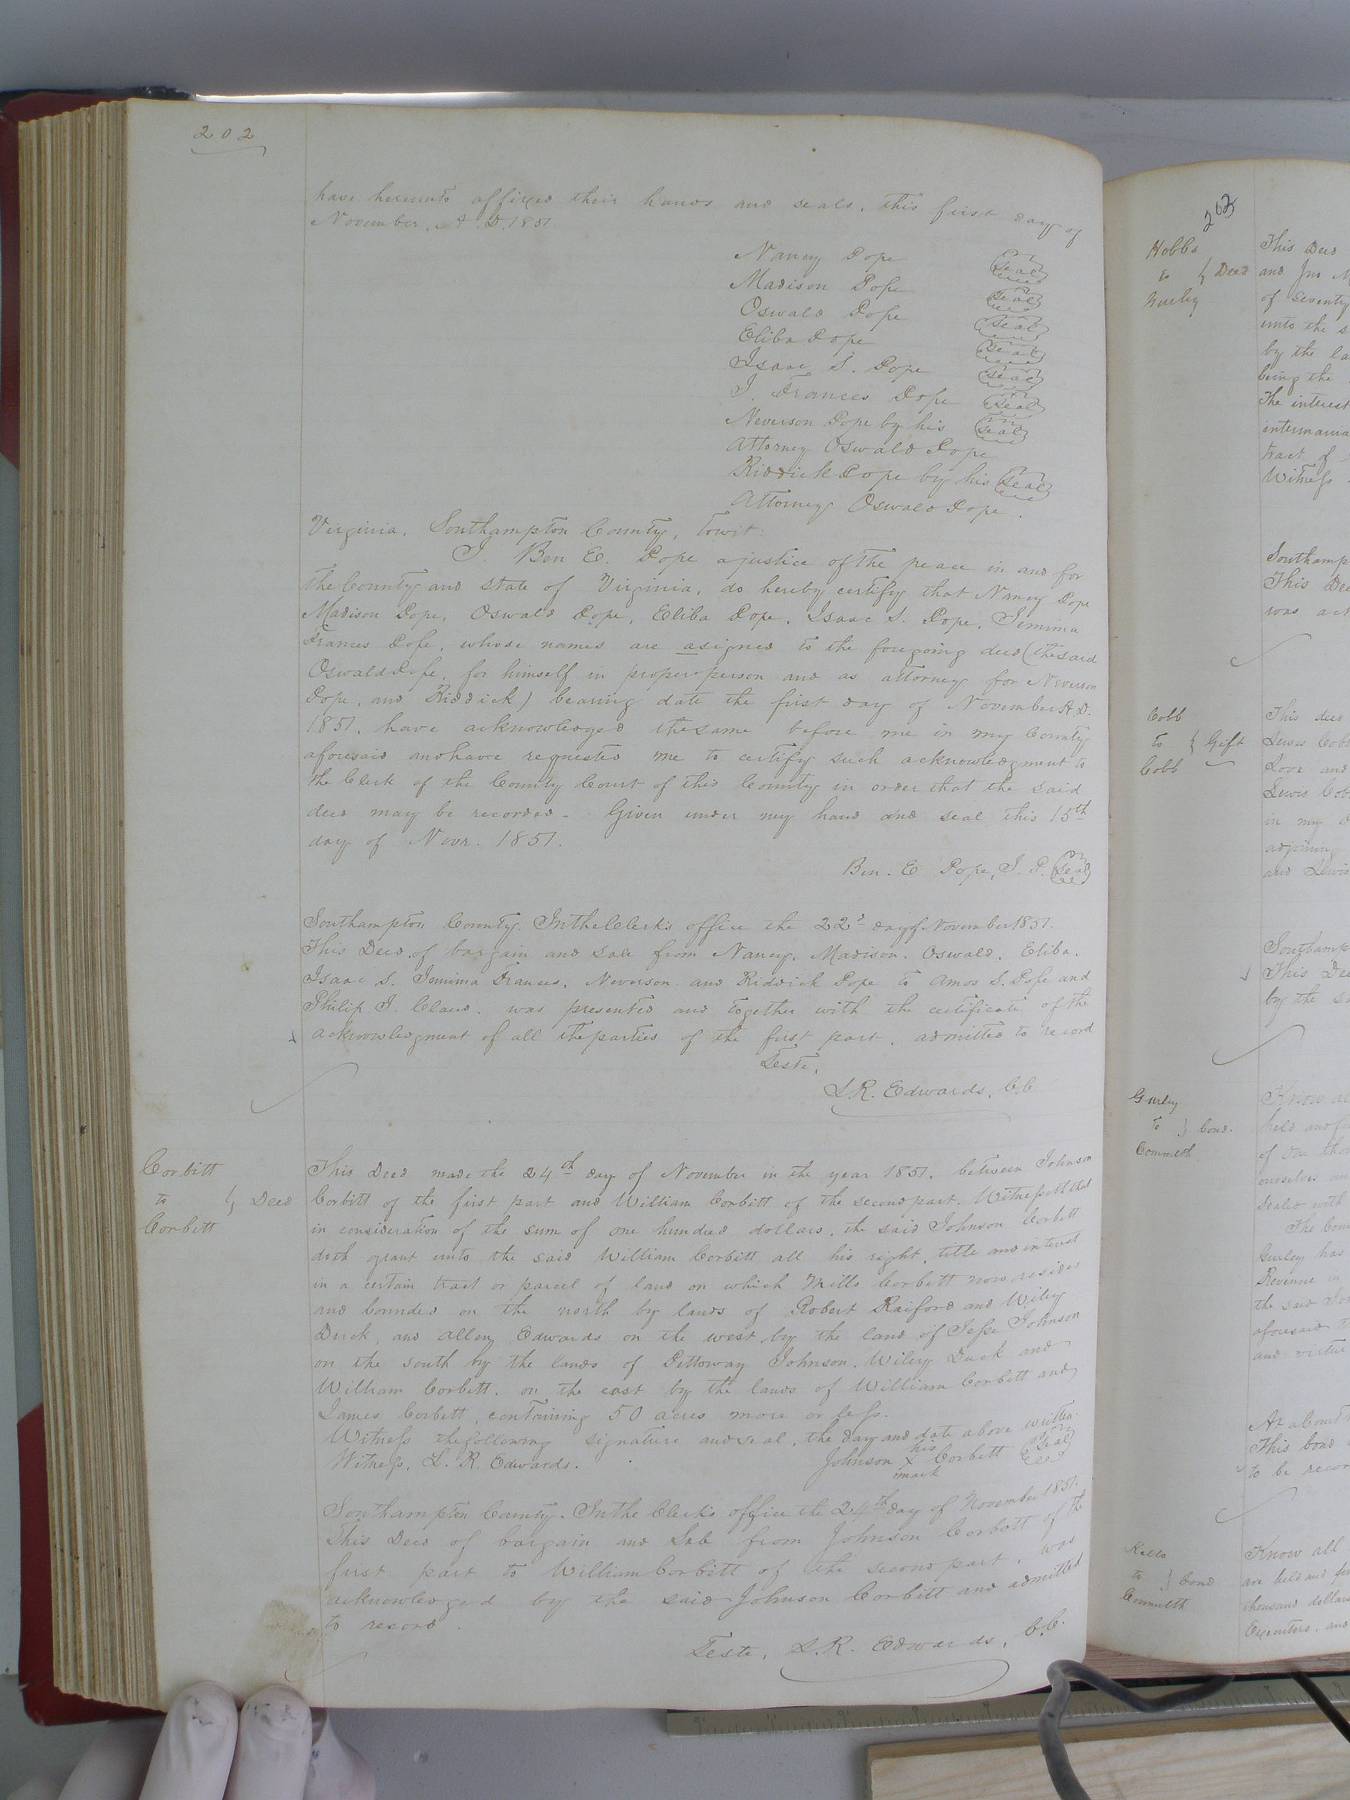 202
have hereunto affixed their hands and seals, this first day of
November, A. D. 1851
Nancy Pope Seal
Madison Pope Seal
Oswald Pope Seal
Eliba Pope Seal
Isaac S. Pope Seal
J. Frances Pope Seal
Neverson Pope by his Seal
Attorney Oswald Pope
Riddick Pope by his Seal
Attorney Oswald Pope.
Virginia, Southampton County, towit:
I. Ben E. Pope a justice of the peace in and for
the County and state of Virginia, do hereby certify that Nancy Pope
Madison Pope, Oswald Pope, Eliba Pope, Isaac S. Pope, Jemima
Frances Pope, whose names are asigned to the foregoing deed (the said
Oswald Pope, for himself in proper person and as attorney for Neverson
Pope, and Riddick) bearing date the first day of November A.D.
1851, have acknowledged the same before me in my County
aforesaid and have requested me to certify such acknowledgment to
the Clerk of the County Court of the County in order that the said
deed may be recorded - Given under my hand and seal this 15th
day of Novr. 1851.
Ben. E Pope, J. P. Seal
Southampton County. In the Clerk's office the 22d day of November 1851.
This Deed of bargain and sale from Nancy, Madison, Oswald, Eliba,
Isaac S. Jemima Frances, Neverson and Riddick Pope to Amos S. Pope and
Philip J. Claud, was presented and together with the certificate of the
acknowledgment of all the parties of the first part, admitted to record
Teste,
L R. Edwards, C.C
Corbitt
to } Deed
Corbitt
This Deed made the 24th day of November in the year 1851, between Johnson
Corbitt of the first part and William Corbitt of the second part, Witnesseth that
in consideration of the sum of one hundred dollars, the said Johnson Corbitt
doth grant unto the said William Corbitt all his right, title and interest
in a certain tract or parcel of land on which Mills Corbitt now resides
and bounded on the north by lands of Robert Raiford and Wiley
Duck, and Alleny Edwards on the west by the land of Jesse Johnson
on the south by the lands of Pettoway Johnson, Wiley Duck and
William Corbitt, on the east by the lands of William Corbitt and
James Corbitt, containing 50 acres more or less.
Witness the following signature and seal, the day and date above written
Witness, L. R. Edwards. Johnson his x mark Corbitt Seal
Southampton County. In the Clerk's office the 24th day of November 1851.
This Deed of bargain and Sale from Johnson Corbitt of the
first part to William Corbitt of the second part, was
acknowledged by the said Johnson Corbitt and admitted
to record.
Teste, L.R. Edwards, C.C.
203
Hobbs
to } Deed
Gurley
This Deed
and Jno
of seventy
unto the
by the
being the
The interest
tract of
Witness
This Deed
was
Cobb
to } Gift
Cobb
This deed
Lewis
Love and
Lewis
in my
adjoining
and Lewis
This
by the
Gurley
to } Bond.
Commlth
Know
held and
of
ourselves
Sealed with
The
Gurley has
Revenue in
the said
aforesaid
and virtue
At a
This bond
to be
to } Bond
Commlth
Know all
are held and
thousand dollars
Executors, and